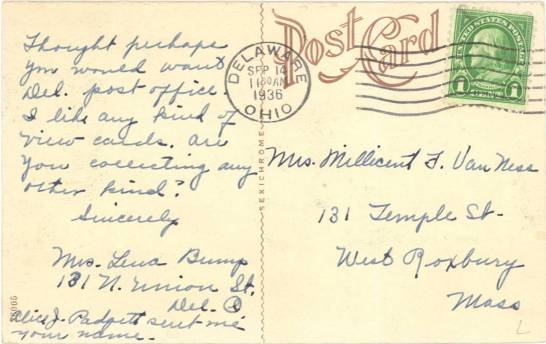 Thought perhaps
you would want
Del. post office.
I like any kind of
view cards. are
you collecting any
other kind?
Sincerely
Mrs. Lena Bump
131 N. Union St.
Del. O
Alice J. Padgett sent me
your name.
Post Card
DELAWARE
SEP 14
11 30AM
1936
OHIO
UNITED STATES POSTAGE
1 1
SEXICHROME
Mrs. Millicent F. Van Ness
131 Temple St.
West Roxbury
Mass